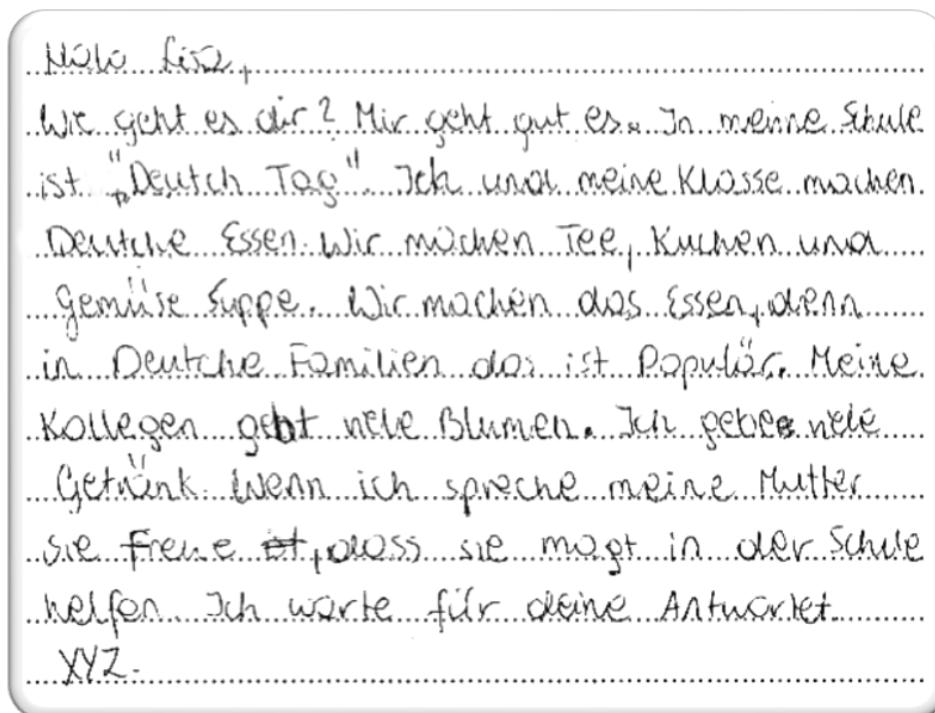 Halo Lisa,
Wie geht es dir? Mir geht gut es. In meine Schule
ist "Deutch Tag". Ich und meine Klasse machen
Deutche Essen. Wir machen Tee, Kuchen und
Gemüse Suppe. Wir machen das Essen, denn
in Deutche Familien das ist Populär. Meine
Kollegen gebt viele Blumen. Ich gebe viele
Getränk. Wenn ich spreche meine Mutter
sie Freue, dass sie magt in der Schule
helfen. Ich warte für deine Antwortet.
XYZ.